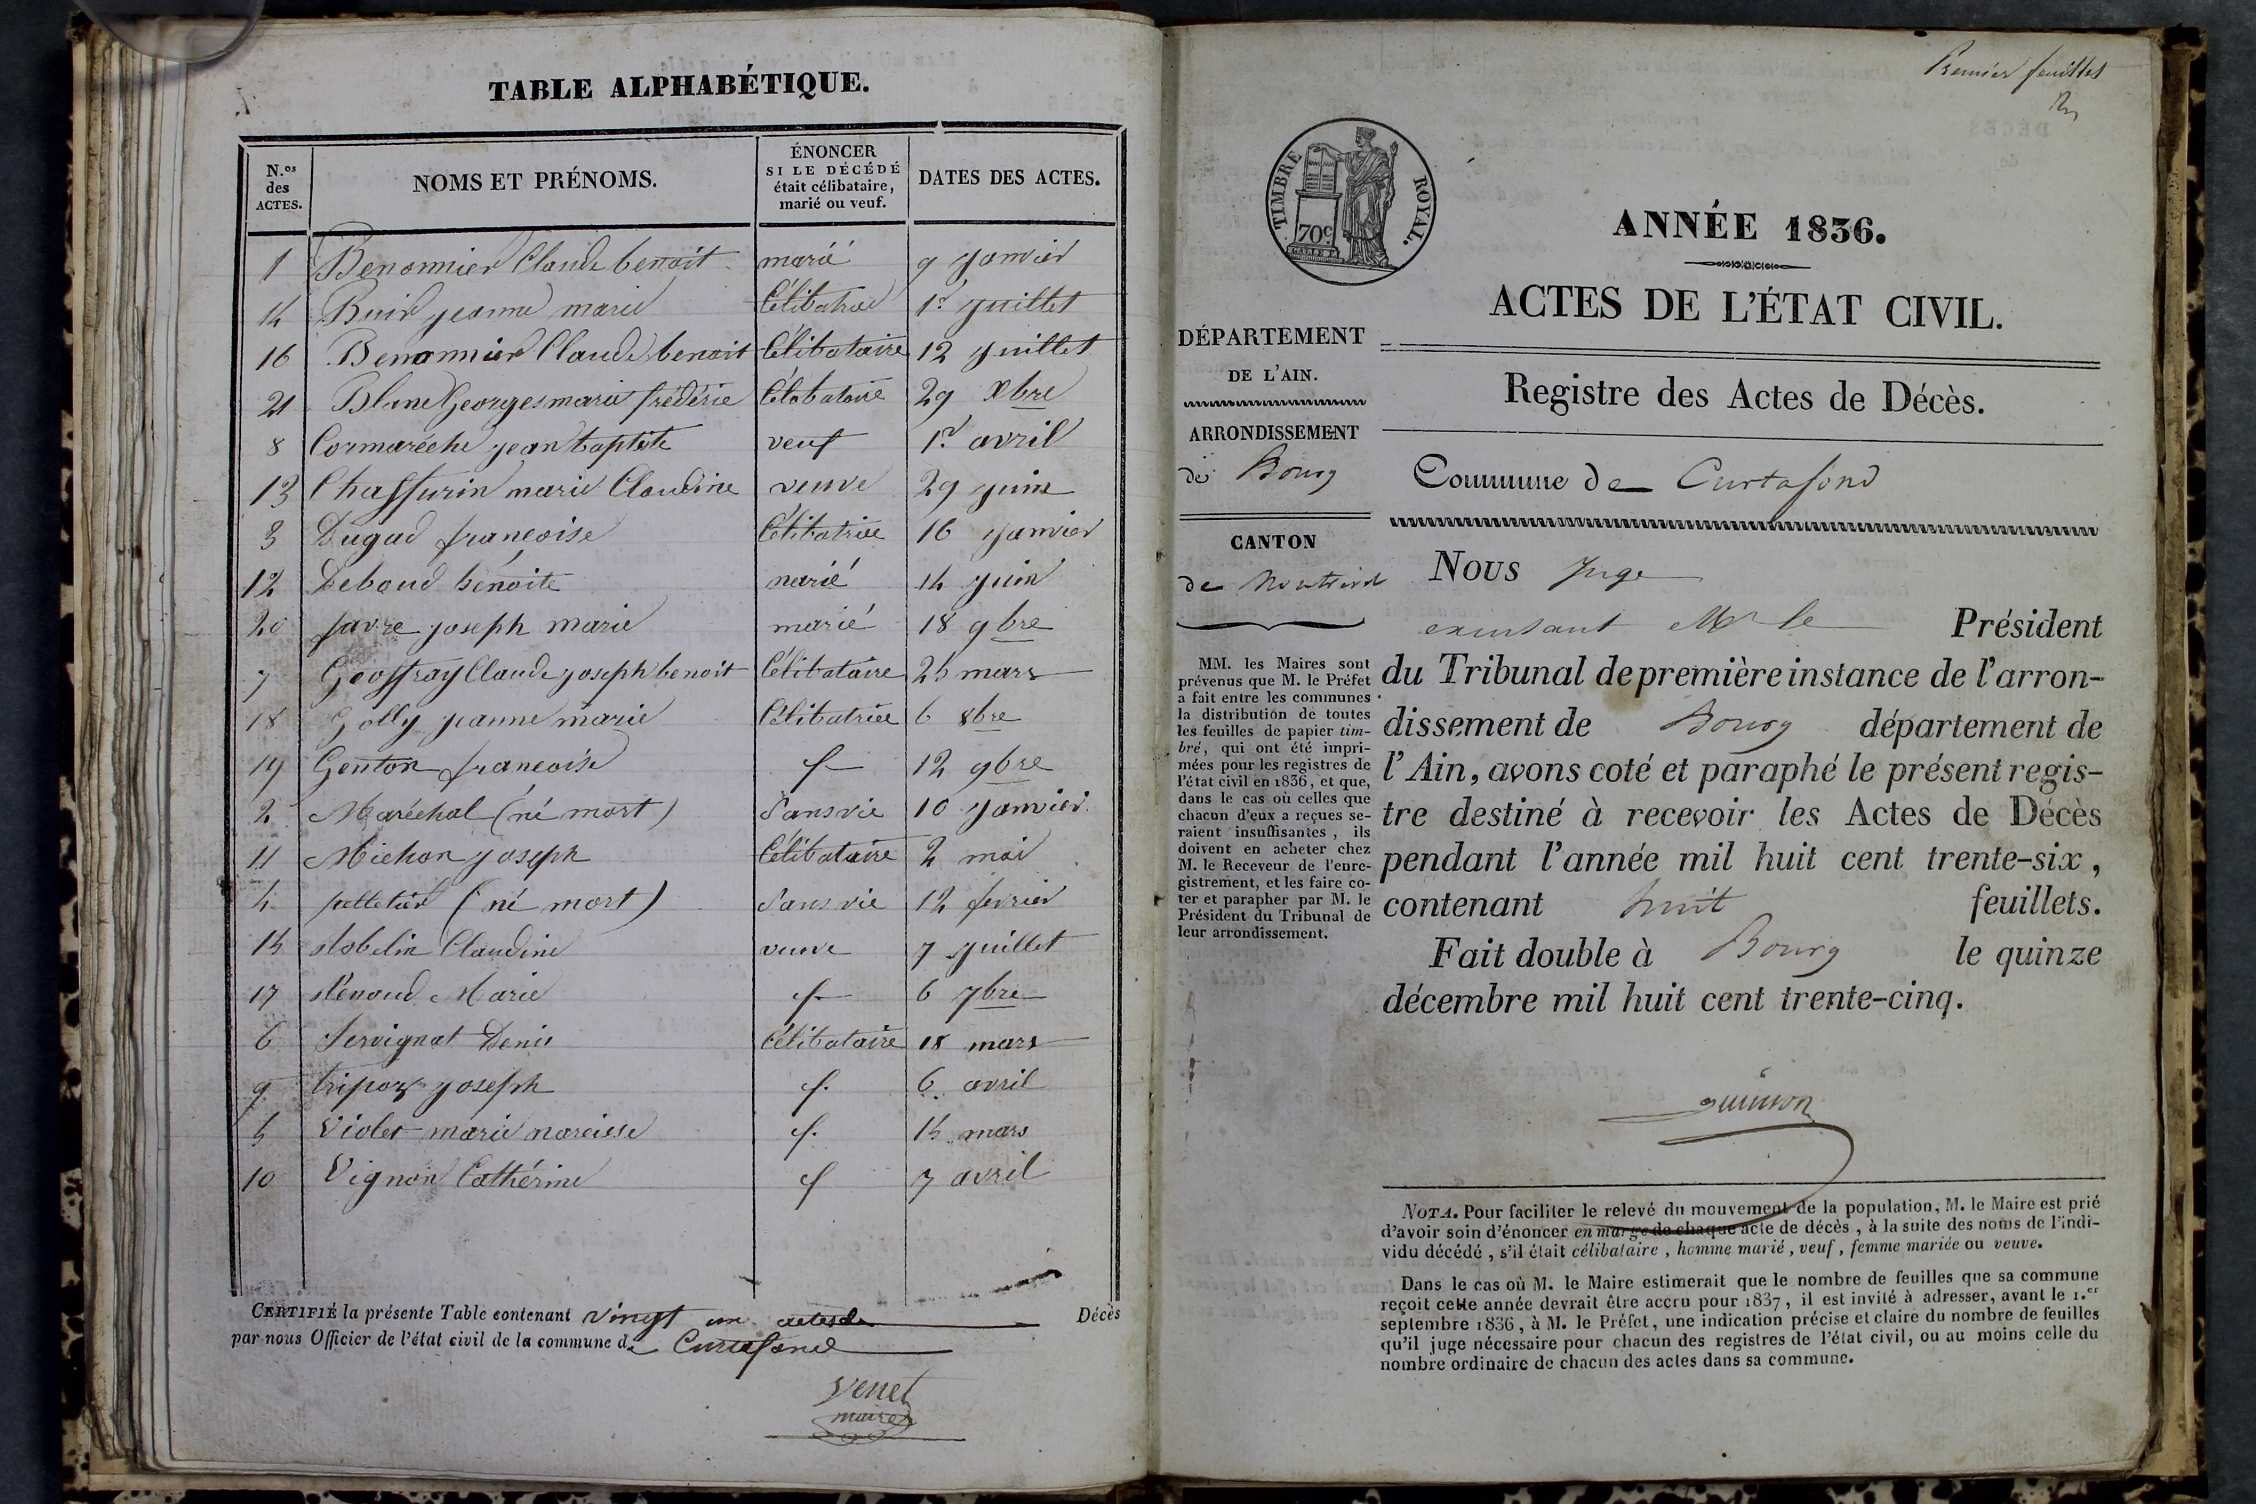 TABLE ALPHABÉTIQUE.
N.os des ACTES. NOMS ET PRÉNOMS. ÉNONCER SI LE DÉCÉDÉ était célibataire, marié ou veuf. DATES DES ACTES.
1 Benonnier Claude benoit marié 9 janvier
14 Buir jeanne marie Célibatrice 1er juillet
16 Benonnier Claude benoit Célibataire 12 juillet
21 Blanc Georges marie frédéric Célibataire 29 Xbre
8 Cormarèche jean baptiste veuf 1er avril
13 Chassurin marie Claudine veuve 29 juin
3 Dugad françoise Célibatrice 16 janvier
12 Deboud benoite marié 14 juin
20 favre joseph marie marié 18 9bre
7 Geoffray Claude joseph benoit Célibataire 25 mars
18 Golly jeanne marie Célibatrice 6 8bre
19 Genton françoise f 12 9bre
2 Maréchal (né mort) Sans vie 10 janvier
11 Michon joseph Célibataire 2 mai
4 pelletier (né mort) Sans vie 12 fevrier
15 Robelin Claudine veuve 7 juillet
17 Renoud Marie f 6 7bre
6 Servignat Denis Célibataire 18 mars
9 tripoz joseph f. 6 avril
5 Violet marie narcisse f. 15 mars
10 Vignon Cathérine f 7 avril
CERTIFIÉ la présente Table contenant vingt un actes de Décès
par nous Officier de l'état civil de la commune de Curtafond
Venet
maire
Premier feuillet
TIMBRE ROYAL.
70c
ANNÉE 1836.
ACTES DE L'ÉTAT CIVIL.
DÉPARTEMENT
DE L'AIN.
ARRONDISSEMENT
de Bourg
CANTON
de Montrevel
MM. les Maires sont
prévenus que M. le Préfet
a fait entre les communes
la distribution de toutes
les feuilles de papier tim-
bré, qui ont été impri-
mées pour les registres de
l'état civil en 1836, et que,
dans le cas où celles que
chacun d'eux a reçues se-
raient insuffisantes, ils
doivent en acheter chez
M. le Receveur de l'enre-
gistrement, et les faire co-
ter et parapher par M. le
Président du Tribunal de
leur arrondissement.
Registre des Actes de Décès.
Commune de Curtafond
Nous Juge
exensant Mr le Président
du Tribunal de première instance de l'arron-
dissement de Bourg département de
l'Ain, avons coté et paraphé le présent regis-
tre destiné à recevoir les Actes de Décès
pendant l'année mil huit cent trente-six,
contenant huit feuillets.
Fait double à Bourg le quinze
décembre mil huit cent trente-cinq.
NOTA. Pour faciliter le relevé du mouvement de la population, M. le Maire est prié
d'avoir soin d'énoncer en marge de chaque acte de décès, à la suite des noms de l'indi-
vidu décédé, s'il était célibataire, homme marié, veuf, femme mariée ou veuve.
Dans le cas où M. le Maire estimerait que le nombre de feuilles que sa commune
reçoit cette année devrait être accru pour 1837, il est invité à adresser, avant le 1.er
septembre 1836, à M. le Préfet, une indication précise et claire du nombre de feuilles
qu'il juge nécessaire pour chacun des registres de l'état civil, ou au moins celle du
nombre ordinaire de chacun des actes dans sa commune.